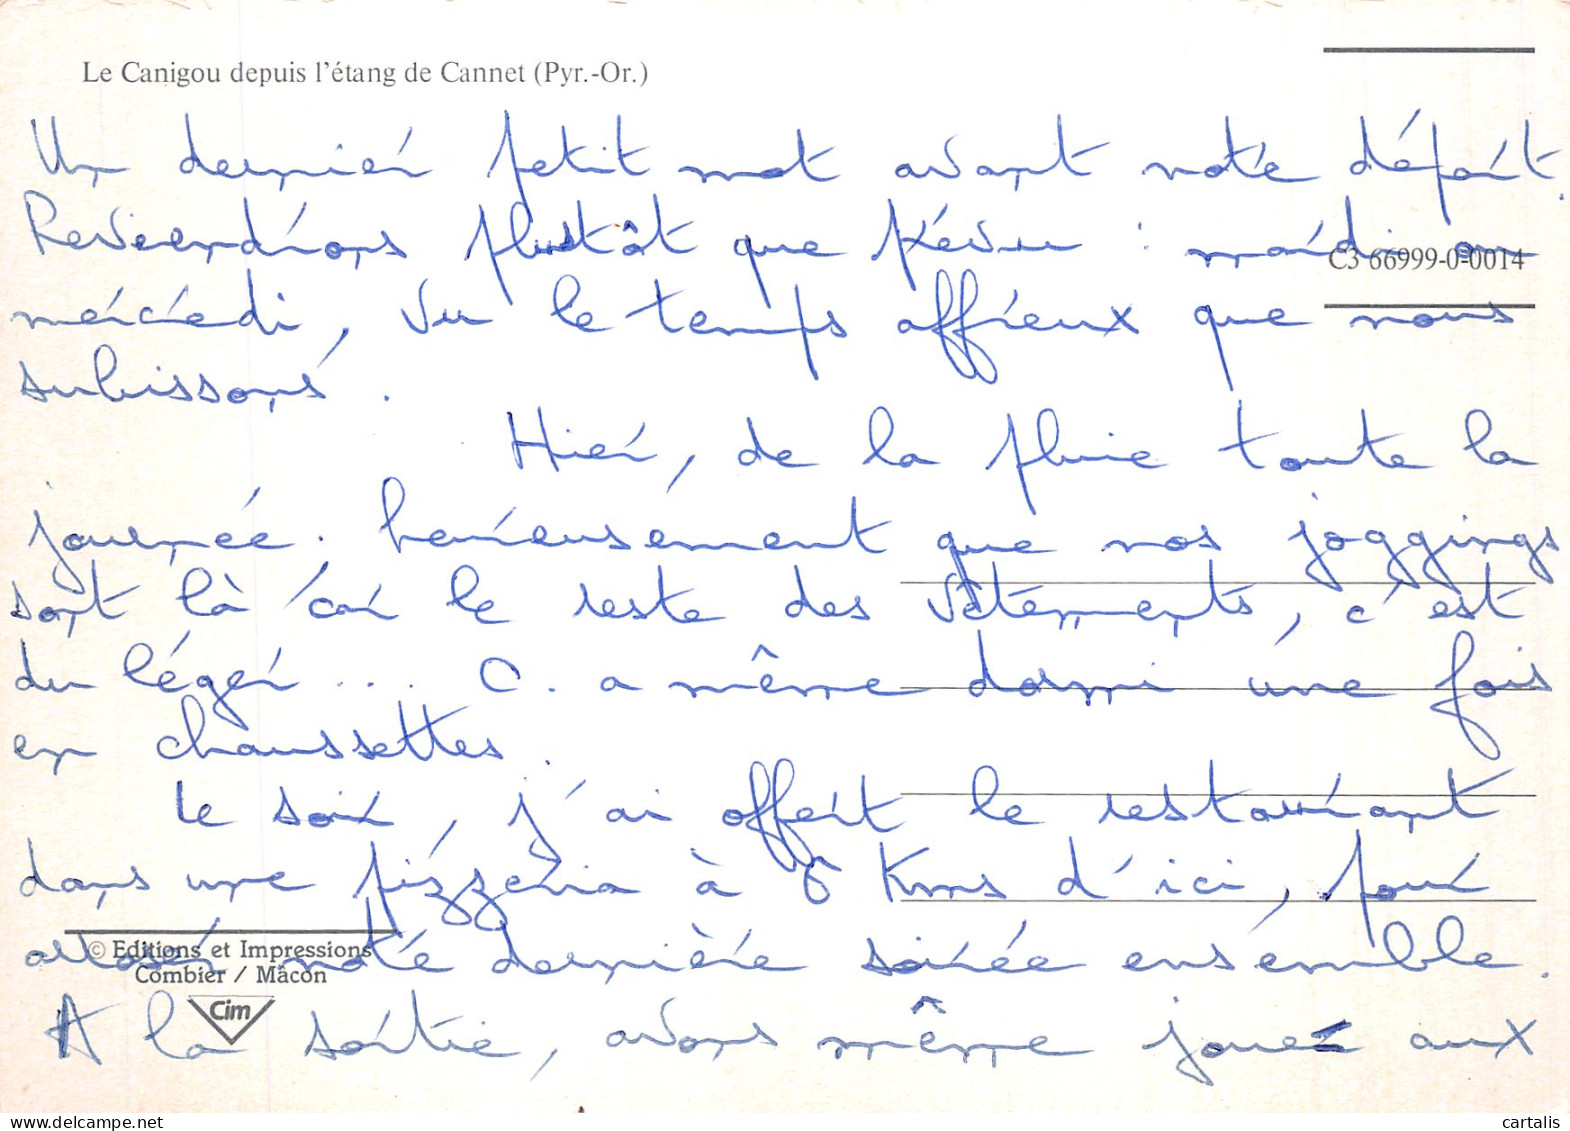 Le Canigou depuis l'étang de Cannet (Pyr.-Or.)
Un dernier petit mot avant notre départ.
Reviendrons plutôt que prévu : mardi ou
C3 66999-0-0014
mercredi, vu le temps affreux que nous
subissons.
Hier, de la pluie toute la
journée. heureusement que nos joggings
sont là car le reste des vêtements, c'est
du léger... C. a même dormi une fois
en chaussettes.
Le soir, j'ai offert le restaurant
dans une pizzeria à 8 Kms d'ici, pour
arroser notre dernière soirée ensemble.
© Editions et Impressions
Combier / Mâcon
Cim
A la sortie, avons même joué aux
cartalis.com